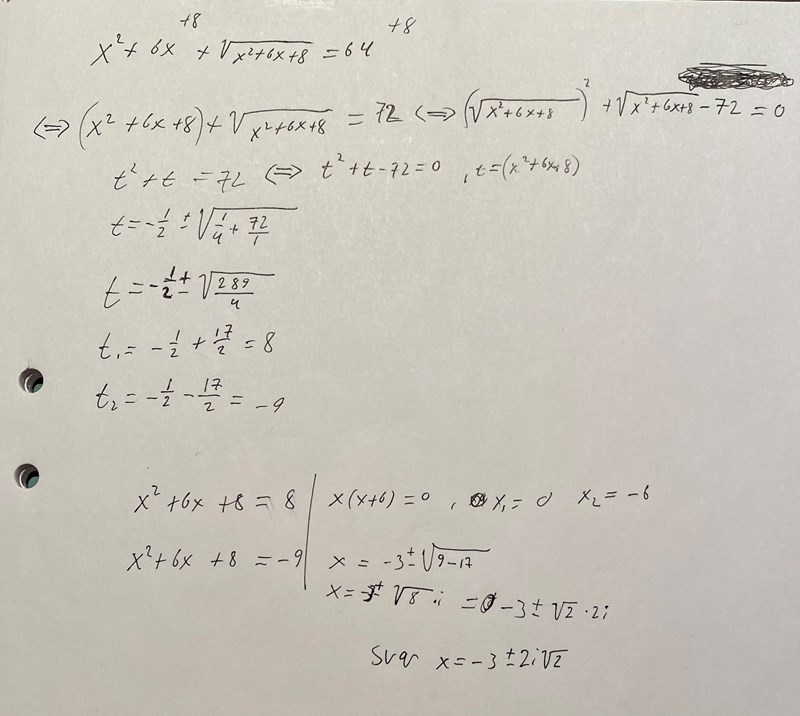 +8 +8
x² + 6x + √(x²+6x+8) = 64
⟺ (x² + 6x + 8) + √(x²+6x+8) = 72 ⟺ (√(x²+6x+8))² + √(x²+6x+8) - 72 = 0
t² + t = 72 ⟺ t² + t - 72 = 0 , t = (x²+6x+8)
t = -1/2 ± √(1/4 + 72/1)
t = -1/2 ± √(289/4)
t₁ = -1/2 + 17/2 = 8
t₂ = -1/2 - 17/2 = -9
x² + 6x + 8 = 8 | x(x+6) = 0 , x₁ = 0 x₂ = -6
x² + 6x + 8 = -9 | x = -3 ± √(9-17)
x = -3 ± √8 · i = -3 ± √2 · 2i
Svar x = -3 ± 2i√2